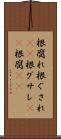 根腐れ根ぐされ
根グサレ
根腐